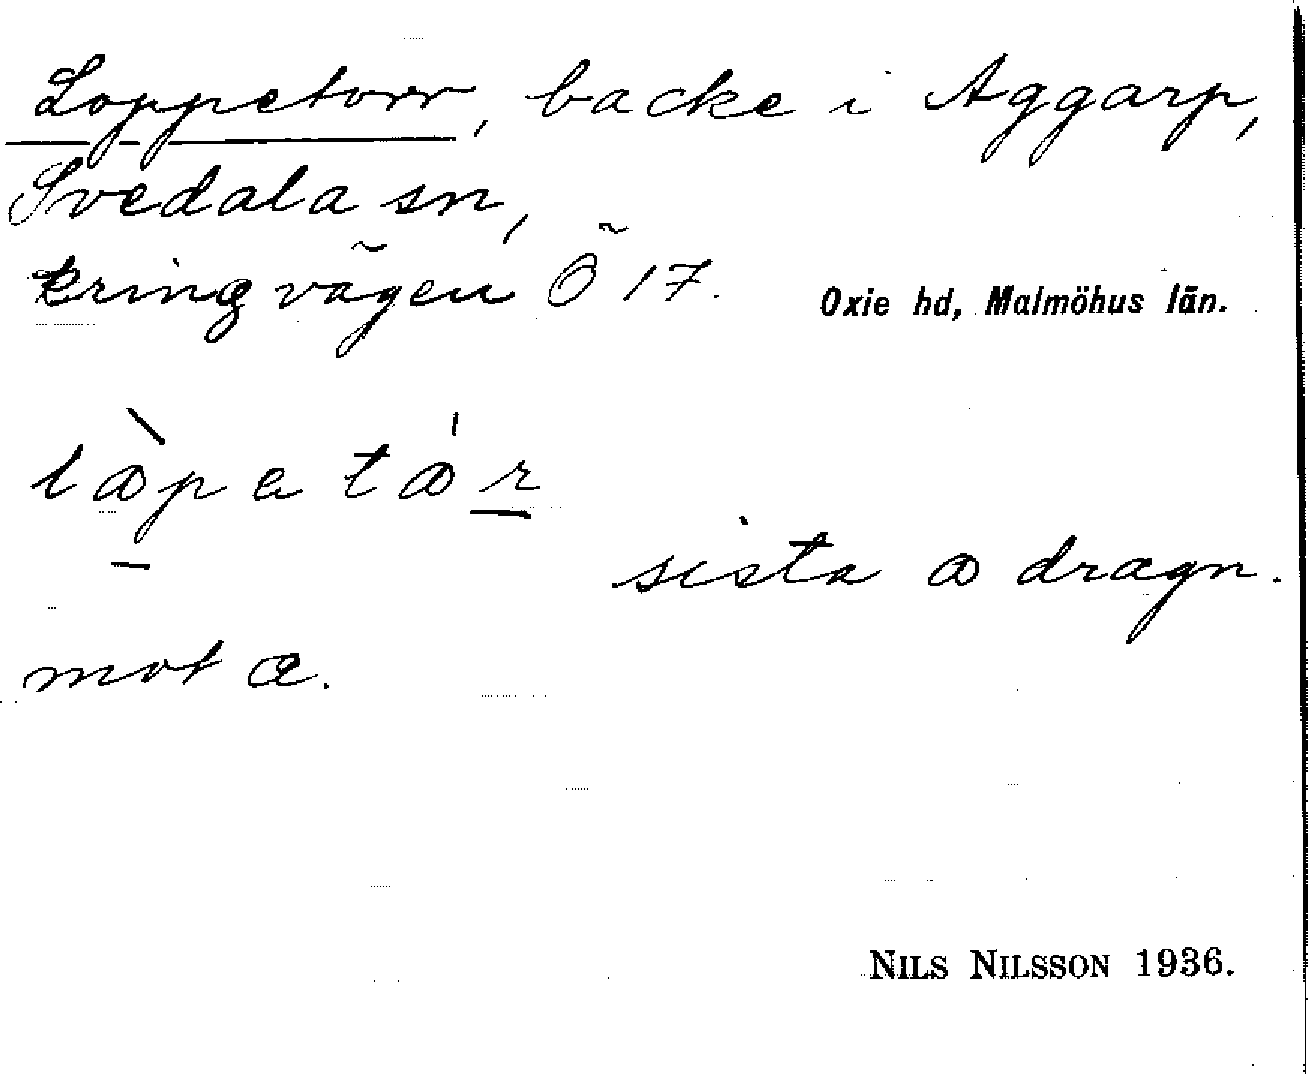 Loppetorr, backe i Aggarp,
Svedala sn,
kring vägen Ö 17. Oxie hd, Malmöhus län.
sista ꝏ dragn.
mot a.
NILS NILSSON 1936.